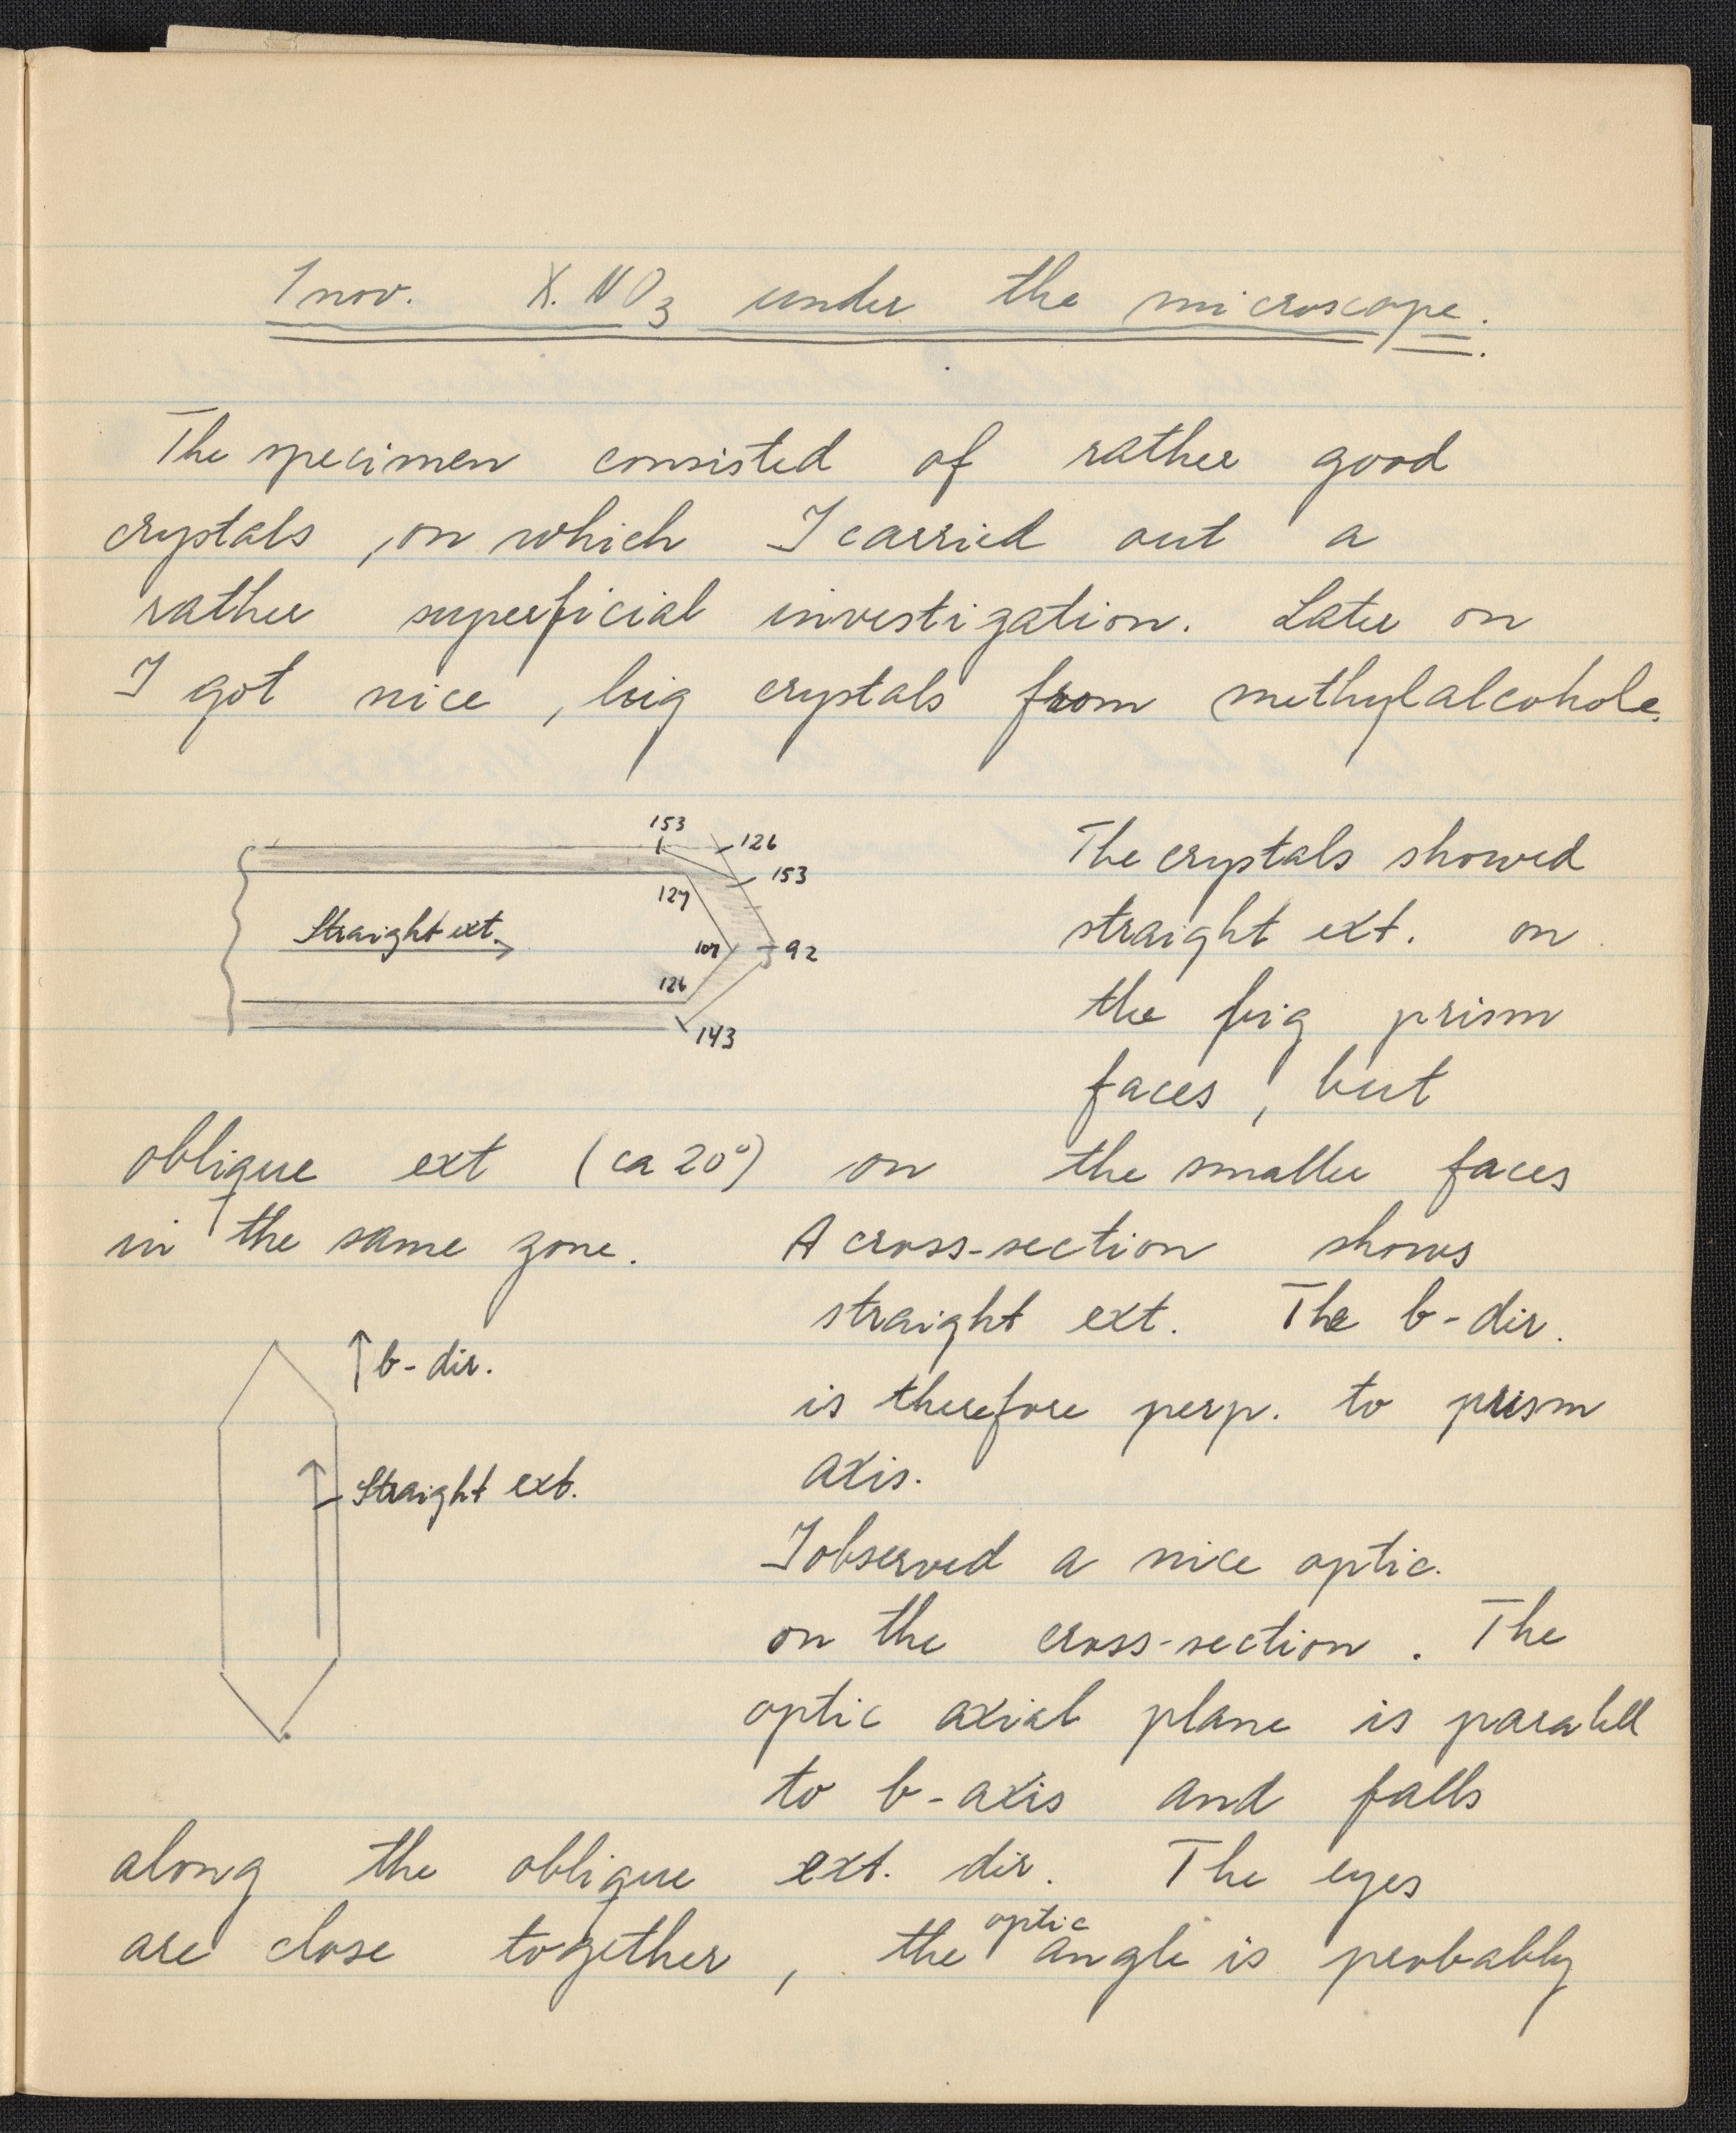 1 nov. X.NO3 under the microscope.
The specimen consisted of rather good
crystals, on which I carried out a
rather superficial investigation. Later on
I got nice, big crystals from methylalcohole.
153
126
153
127
Straight ext.
107
92
126
143
The crystals showed
straight ext. on
the big prism
faces, but
oblique ext (ca 20°) on the smaller faces
in the same zone. A cross-section shows
straight ext. The b-dir.
is therefore perp. to prism
axis.
b-dir.
Straight ext.
I observed a nice optic.
on the cross-section. The
optic axial plane is paralell
to b-axis and falls
along the oblique ext. dir. The eyes
are close together, the optic angle is probably